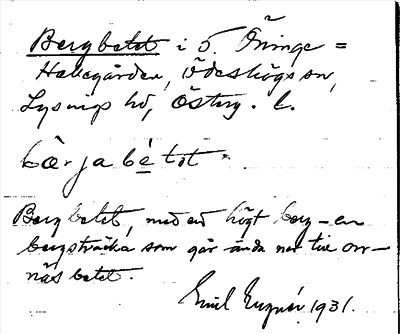 Bergbetet i S. Öninge =
Habegården, Ödeshögs sn,
Lysings hd, Österg. l.
bærjabètet
Bergbetet, med ett högt berg – en
bergsträcka som går ända ner till orr-
näsbetet.
Emil 1931.